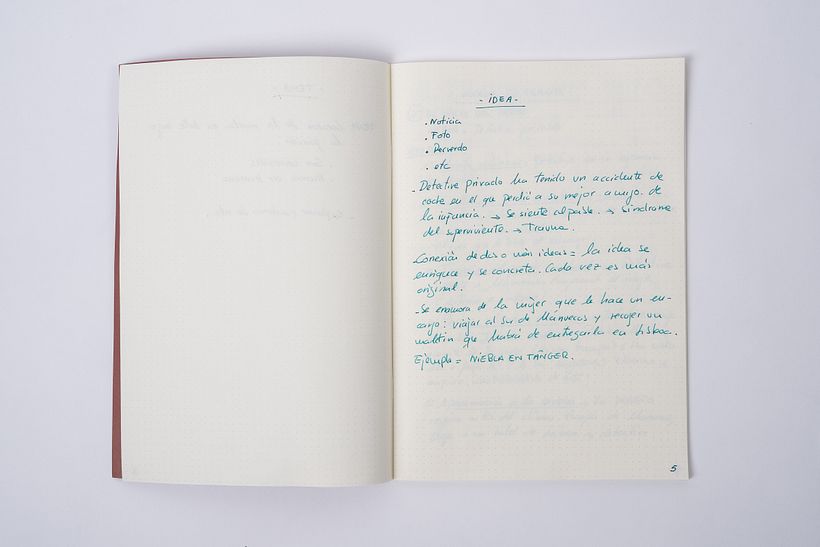 - iDEA -
. Noticia
. Foto
. Recuerdo
. etc
- Detective privado ha tenido un accidente de
coche en el que perdió a su mejor amigo de
la infancia. → Se siente culpable. → Síndrome
del superviviente. → Trauma.
- Conexión de dos o más ideas = la idea se
enriquece y se concreta. Cada vez es más
original.
- Se enamora de la mujer que le hace un en-
cargo: viajar al Sur de Marruecos y recoger un
maletín que habrá de entregarla en Lisboa.
Ejemplo = NIEBLA EN TÁNGER.
5